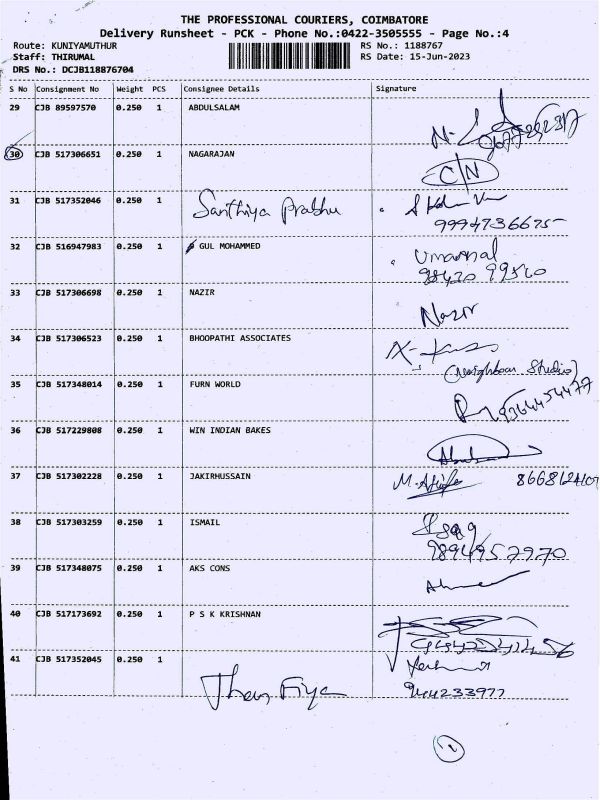 THE PROFESSIONAL COURIERS, COIMBATORE
Delivery Runsheet - PCK - Phone No.:0422-3505555 - Page No.:4
Route: KUNIYAMUTHUR RS No.: 1188767
Staff: THIRUMAL RS Date: 15-Jun-2023
DRS No.: DCJB118876704
S No Consignment No Weight PCS Consignee Details Signature
29 CJB 89597570 0.250 1 ABDULSALAM
30 CJB 517306651 0.250 1 NAGARAJAN C/N
31 CJB 517352046 0.250 1 Santhiya Prabhu
9994736675
32 CJB 516947983 0.250 1 GUL MOHAMMED Umammal
98420 99560
33 CJB 517306698 0.250 1 NAZIR Nazir
34 CJB 517306523 0.250 1 BHOOPATHI ASSOCIATES
(Neighbour Studio)
35 CJB 517348014 0.250 1 FURN WORLD 9364454477
36 CJB 517229808 0.250 1 WIN INDIAN BAKES
37 CJB 517302228 0.250 1 JAKIRHUSSAIN
38 CJB 517303259 0.250 1 ISMAIL
9894957970
39 CJB 517348075 0.250 1 AKS CONS
40 CJB 517173692 0.250 1 P S K KRISHNAN
41 CJB 517352045 0.250 1
944233977